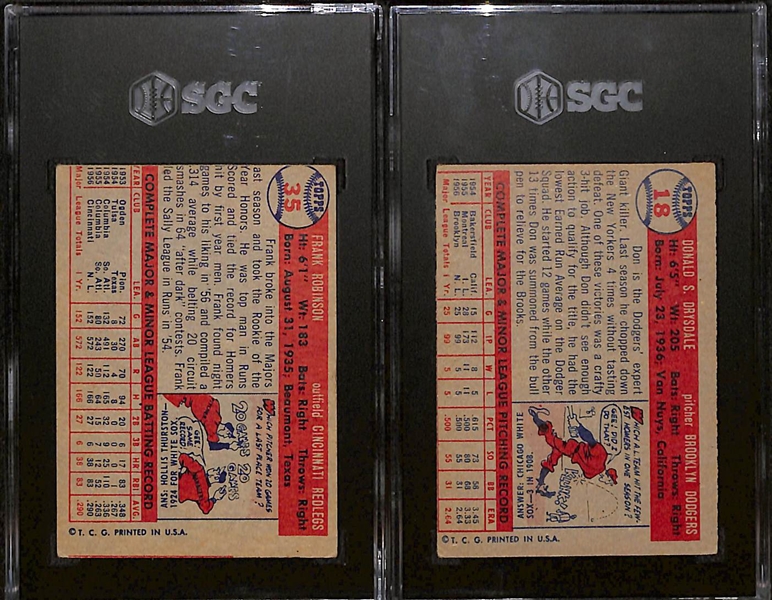 SGC
TOPPS
35
FRANK ROBINSON
outfield CINCINNATI REDLEGS
Ht: 6'1" Wt: 183 Bats: Right Throws: Right
Born: August 31, 1935; Beaumont, Texas
Frank broke into the Majors
last season and took the Rookie of the
Year Honors. He was top man in Runs
Scored and tied the record for Homers
hit by first year men. Frank found night
games to his liking in '56 and compiled a
.314 average while belting 20 circuit
smashes in 64 "after dark" contests. Frank
led the Sally League in Runs in '54.
WHICH PITCHER WON 20 GAMES
FOR A LAST PLACE TEAM?
20 GAMES
ANS: HOLLIS THURSTON-
1924 WHITE SOX.
COMPLETE MAJOR & MINOR LEAGUE BATTING RECORD
YEAR CLUB LEA. G AB R H 2B 3B HR RBI AVG.
1953 Ogden Pion. 72 270 70 94 20 6 17 83 .348
1956 Cincinnati N. L. 152 572 122 166 27 6 38 83 .290
Major League Totals 1 Yr. 152 572 122 166 27 6 38 83 .290
© T. C. G. PRINTED IN U.S.A.
SGC
TOPPS
18
DONALD S. DRYSDALE
pitcher BROOKLYN DODGERS
Ht: 6'5" Wt: 205 Bats: Right Throws: Right
Born: July 23, 1936; Van Nuys, California
Don is the Dodgers' expert
Giant killer. Last season he chopped down
the New Yorkers 4 times without tasting
defeat. One of these victories was a crafty
3-hit job. Although Don didn't see enough
action to qualify for the title, he had the
lowest Earned Run Average on the Dodger
Squad. He started 12 games while the other
13 times Don was summoned from the bull
pen to relieve for the Brooks.
WHICH A.L. TEAM HIT THE FEW-
EST HOMERS IN ONE SEASON?
GEE! DID I
DO THAT?
ANSWER: CHICAGO WHITE
SOX-3 IN 1908.
COMPLETE MAJOR & MINOR LEAGUE PITCHING RECORD
YEAR CLUB LEA. G IP W L PCT. SO BB ERA
1954 Bakersfield Calif. 15 112 8 5 .615 73 58 3.45
1955 Montreal Int. 28 173 11 11 .500 80 68 3.33
1956 Brooklyn N. L. 25 99 5 5 .500 55 31 2.64
Major League Totals 1 Yr. 25 99 5 5 .500 55 31 2.64
© T. C. G. PRINTED IN U.S.A.